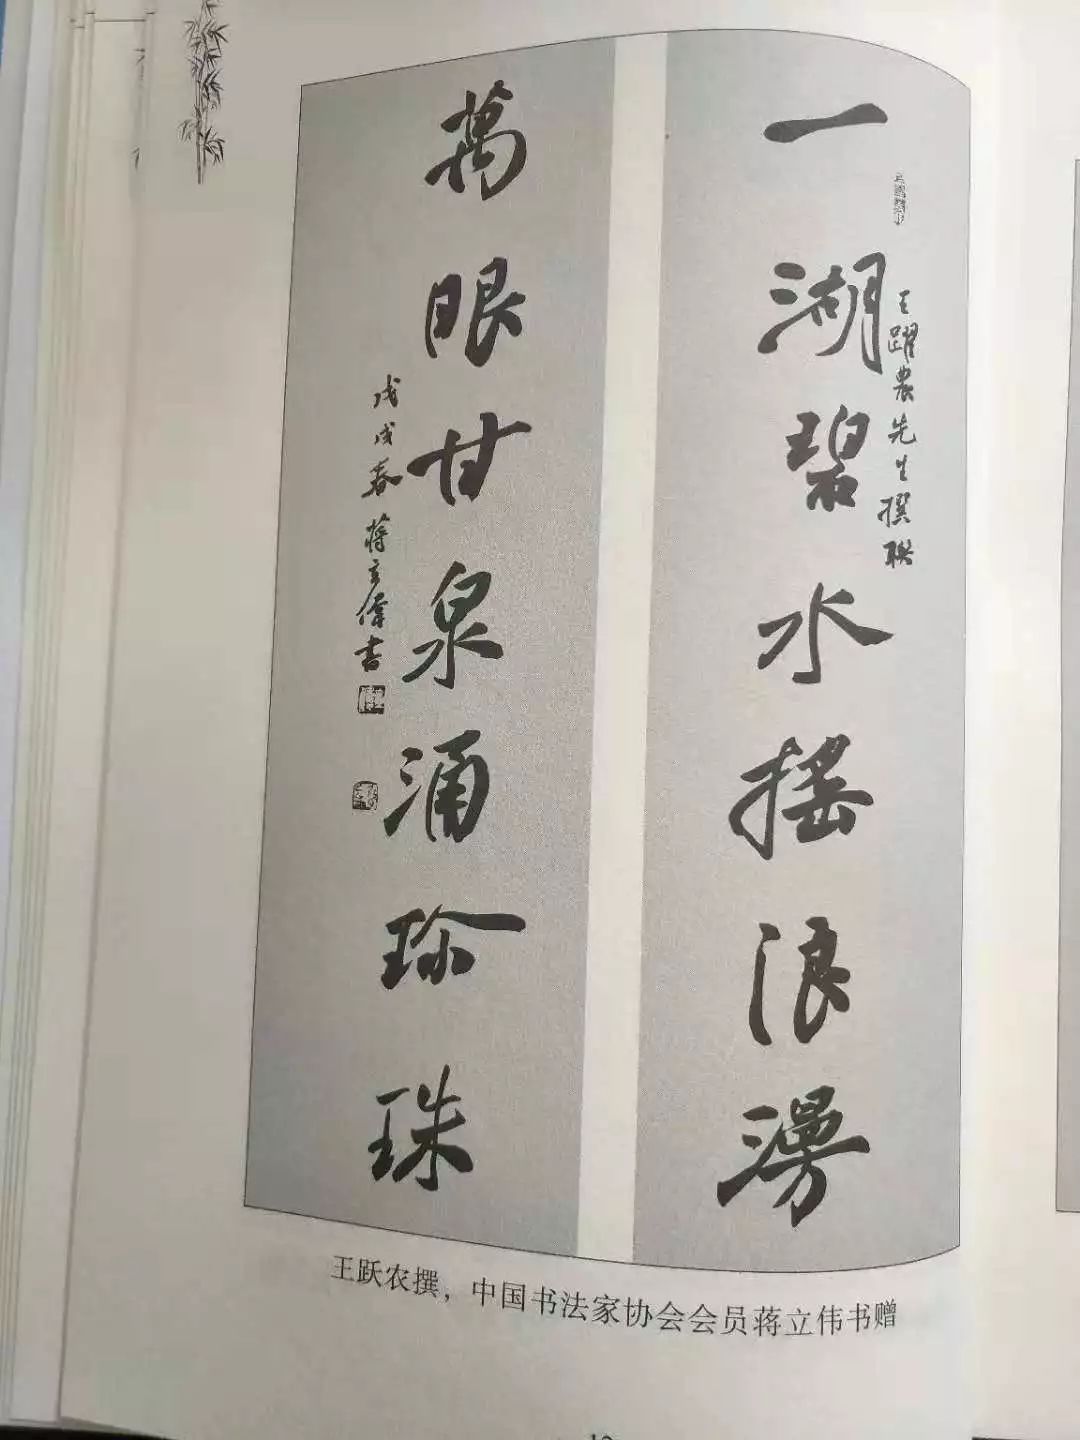 一湖碧水摇浪漫
王躍農先生撰联
萬眼甘泉涌珍珠
戊戌春蒋立偉書
王跃农撰，中国书法家协会会员蒋立伟书赠